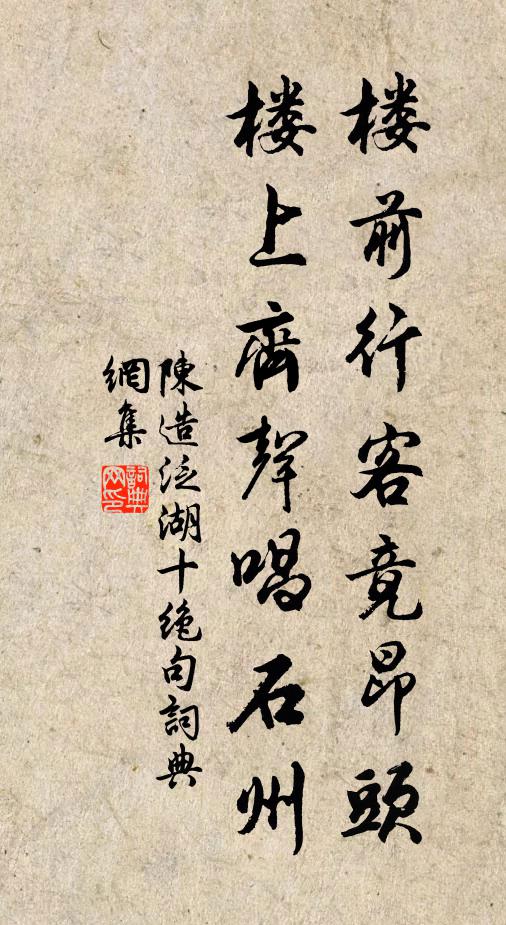 楼前行客竟昂頭
楼上齊聲唱石州
陳造泛湖十絶句詞典
網集
詞典
网印